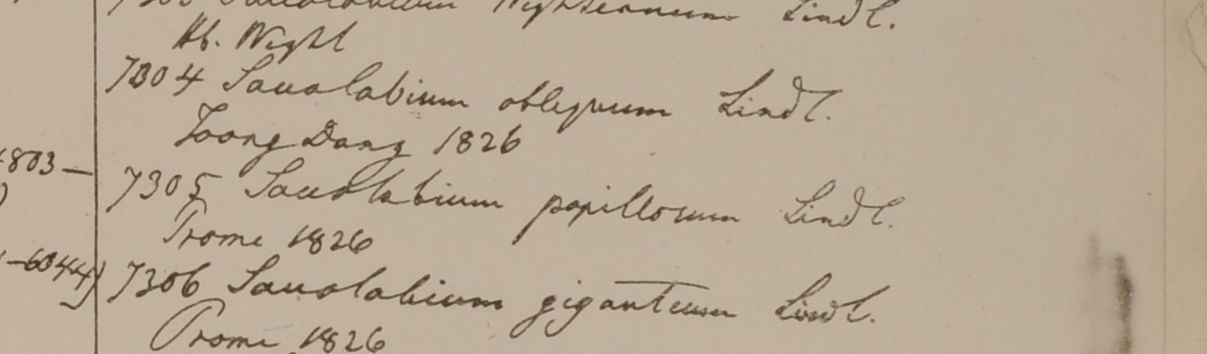 7303 Saccolabium Wightianum Lindl.
Hb. Wight
7304 Saccolabium obliquum Lindl.
Toong Dong 1826
7305 Saccolabium papillosum Lindl.
Prome 1826
7306 Saccolabium giganteum Lindl.
Prome 1826